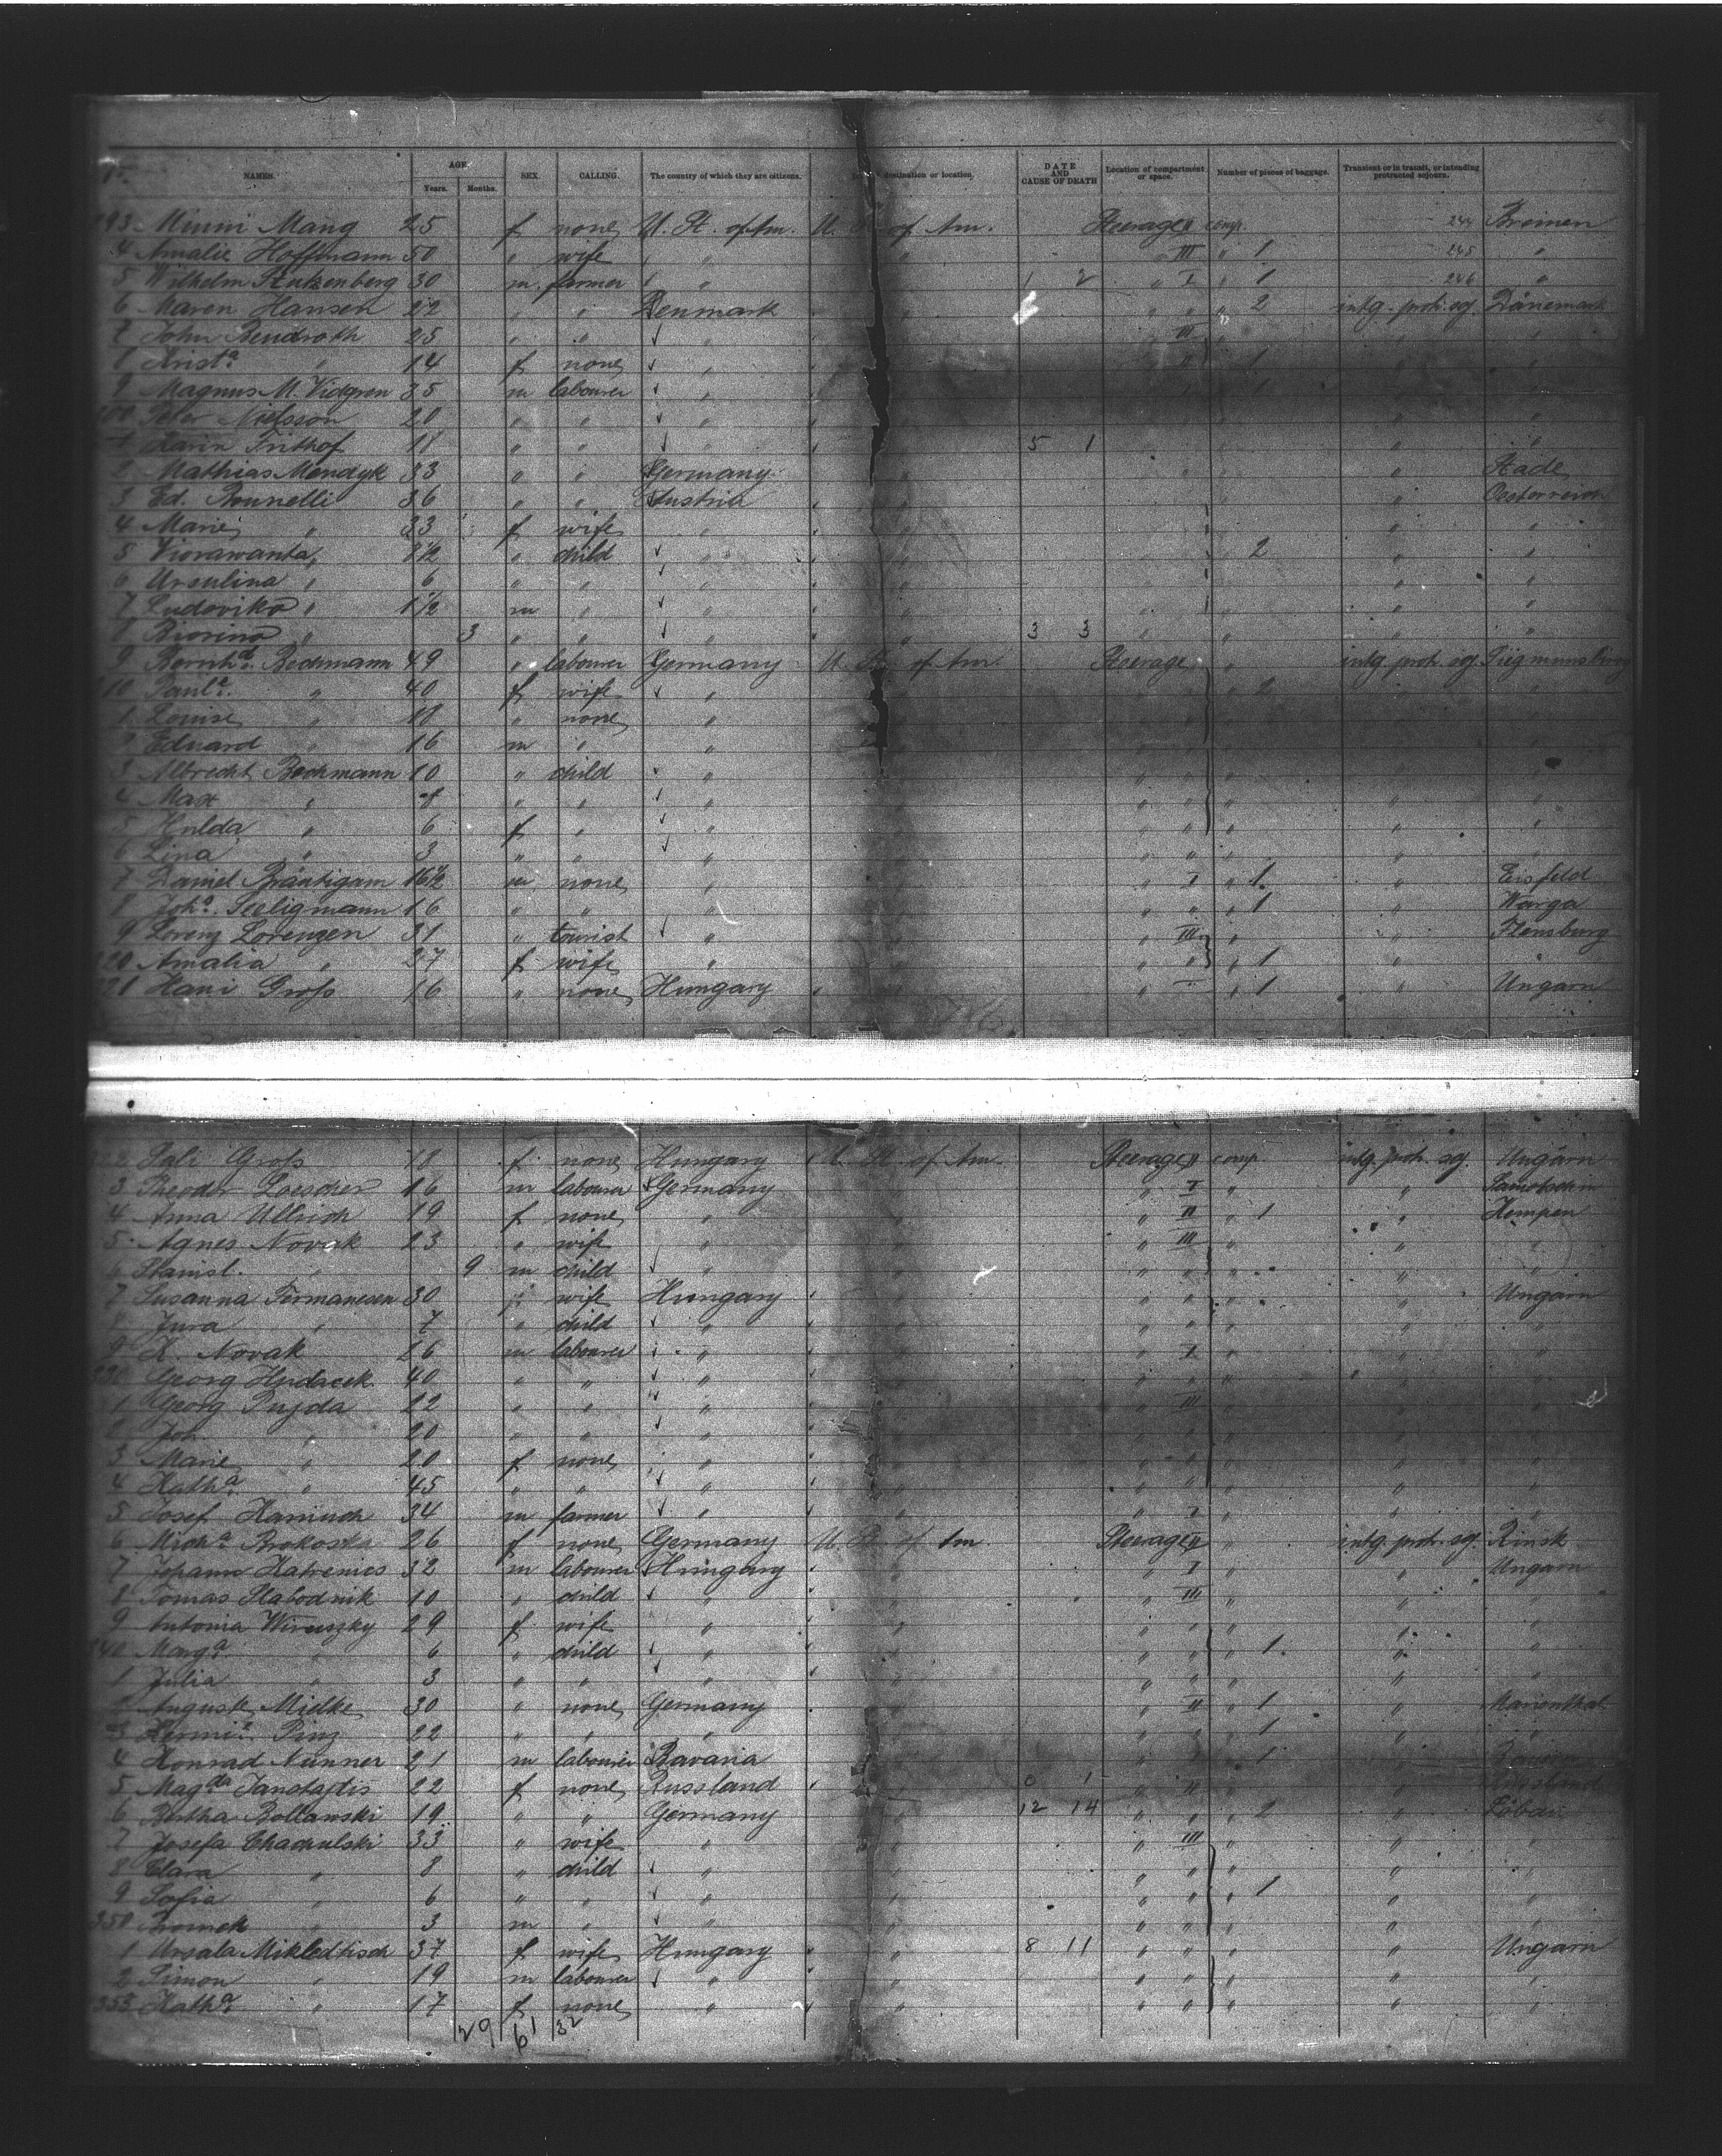 NAMES. AGE. Years. Months. SEX. CALLING. The country of which they are citizens. destination or location. DATE AND CAUSE OF DEATH Location of compartment or space. Number of pieces of baggage. Transient or in transit, or intending protracted sojourn.
293 Minni Mang 25 f none U. St. of Am. U. of Am. Steerage II comp. 244 Bremen
4 Amalie Hoffmann 50 " wife " " " III " 1 245 "
5 Wilhelm Stukenberg 30 m farmer " 2 " I " 1 246 "
6 Maren Hansen 22 " " Denmark " " " " 2 intg. protr. soj. Dänemark
7 John Bendroth 25 " " " " III " "
8 Krist.a " 14 f none " " " " 1 " "
9 Magnus M. Vidgren 35 m labourer " " 1 " "
300 Peter Nielsson 20 " " " " " "
1 Karin Frithof 18 " " " " 5 1 " "
2 Mathias Mendyk 33 " " Germany " " Stade
3 Ed. Prunelli 36 " " Austria " " Oesterreich
4 Marie " 33 f wife " " " "
5 " 8½ " child " " " 2 " "
6 Ursulina " 6 " " " " " "
7 Ludovika " 1½ m " " " " "
8 " 3 " " " " 3 3 " "
9 Bernhd. Beckmann 49 " labourer Germany U. St. of Am. Steerage " intg. protr. soj.
10 Paula. " 40 f wife " " " "
1 Louise " 18 " none " " "
2 Eduard " 16 m " " "
3 Albrecht Beckmann 10 " child " " " " "
4 Max " 8 " " " " " " " " "
5 Hulda " 6 f " " " " " " " "
6 Lina " 3 " " " " " " " "
7 Daniel Bräutigam 16½ m none " " " I " 1 " Eisfeld
8 Joha. Seeligmann 16 " " " " " " " 1 " Warga
9 Lorenz Lorenzen 31 " tourist " " " III " " Flensburg
320 Amalia " 27 f wife " " " " " 1 " "
321 Hani Groß 16 " none Hungary " " " I " 1 " Ungarn
322 Sali Groß 18 f none Hungary U. St. of Am. Steerage II comp. intg. protr. soj. Ungarn
3 Theodor Loescher 16 m labourer Germany " " I " "
4 Anna Ullrich 19 f none " " " II " 1 " Kempen
5 Agnes Novak 23 " wife " " " III " " "
6 Stanisl. " 9 m child " " " " " " "
7 Susanna 30 f wife Hungary " " " " " Ungarn
8 Jura " 7 " child " " " " " " "
9 K. Novak 26 m labourer " " " I " " "
330 Georg Hudacek 40 " " " " " " " " "
1 Georg Pujda 22 " " " " III " "
2 Joh. " 20 " " " " " "
3 Marie " 20 f none " " " " " "
4 Katha. " 45 " " " " " " " "
5 Josef Hanisch 34 m farmer " " " I " " "
6 Micha. Brokoska 26 f none Germany U. St. of Am Steerage II " intg. protr. soj. Rinsk
7 Johann Katrenics 32 m labourer Hungary " " I " " Ungarn
8 Tomas Slabodnik 10 " child " " " III " " "
9 Antonia Wiruszky 29 f wife " " " " " " "
340 Marga. " 6 " child " " " " " 1 " "
1 Julia " 3 " " " " " " " " "
2 Auguste Mielke 30 " none Germany " " II " 1 " Marienthal
3 Hermi. Pinz 22 " " " " " " " 1 " "
4 Konrad Nunner 21 m labourer Bavaria " " " 1 "
5 Magda. 22 f none Russland " 0 1 " III " " Russland
6 Bertha Bollawski 19 " " Germany " 12 14 " " " 2 " Löbau
7 Josefa Chachulski 33 " wife " " " III " " "
8 Clara " 8 " child " " " " " " "
9 Sofia " 6 " " " " " " " 1 " "
350 " 3 m " " " " " " " "
1 Ursala Mikledtisch 37 f wife Hungary " 8 11 " " " " Ungarn
2 Simon " 19 m labourer " " " " " " "
353 Katha. " 17 f none " " " " " " "
29 61 32